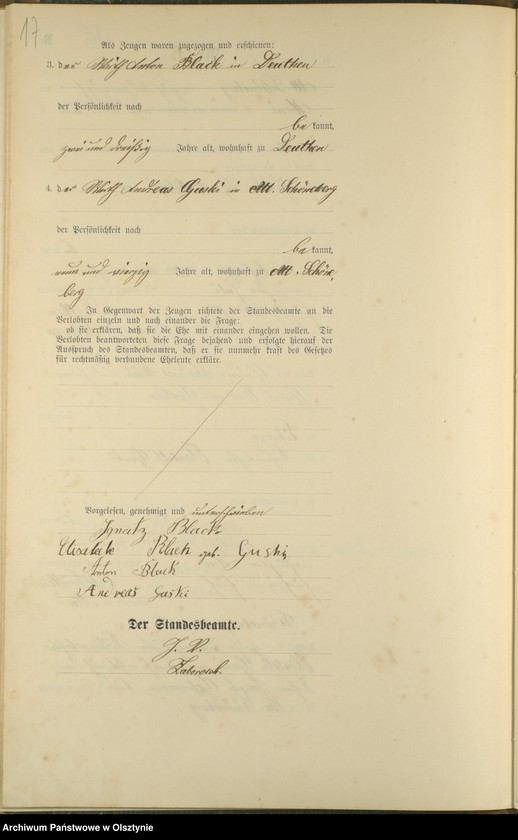 17
Als Zeugen waren zugezogen und erschienen:
3. der Wirth Anton Black in Leuthen
der Persönlichkeit nach
bekannt,
zwei und dreißig Jahre alt, wohnhaft zu Leuthen
4. der Wirth Andreas Guski in Alt. Schöneberg
der Persönlichkeit nach
bekannt,
neun und vierzig Jahre alt, wohnhaft zu Alt. Schöne,
berg
In Gegenwart der Zeugen richtete der Standesbeamte an die
Verlobten einzeln und nach einander die Frage:
ob sie erklären, daß sie die Ehe mit einander eingehen wollen. Die
Verlobten beantworteten diese Frage bejahend und erfolgte hierauf der
Ausspruch des Standesbeamten, daß er sie nunmehr kraft des Gesetzes
für rechtmäßig verbundene Eheleute erkläre.
Vorgelesen, genehmigt und unterschrieben
Ignatz Black
Black geb. Guski
Anton Black
Andreas Guski
Der Standesbeamte.
J. V.
Archiwum Państwowe w Olsztynie